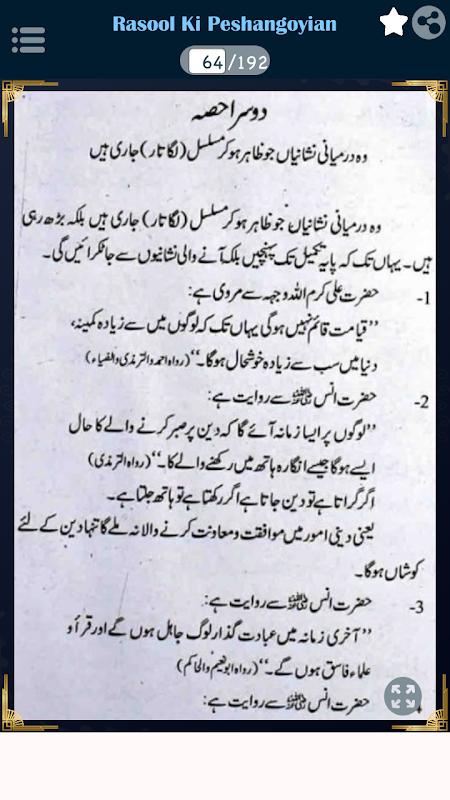 Rasool Ki Peshangoyian
64/192
دوسرا حصہ
وہ درمیانی نشانیاں جو ظاہر ہو کر مسلسل (لگاتار) جاری ہیں
وہ درمیانی نشانیاں جو ظاہر ہو کر مسلسل (لگاتار) جاری ہیں بلکہ بڑھ رہی
ہیں۔ یہاں تک کہ پایہ تکمیل تک پہنچیں بلکہ آنے والی نشانیوں سے جا ٹکرائیں گی۔
1- حضرت علی کرم اللہ وجہہ سے مروی ہے:
"قیامت قائم نہیں ہو گی یہاں تک کہ لوگوں میں سے زیادہ کمینہ،
دنیا میں سب سے زیادہ خوشحال ہوگا۔" (رواہ احمد والترمذی والضیاء)
2- حضرت انس ﷺ سے روایت ہے:
"لوگوں پر ایسا زمانہ آئے گا کہ دین پر صبر کرنے والے کا حال
ایسے ہوگا جیسے انگارہ ہاتھ میں رکھنے والے کا۔" (رواہ الترمذی)
اگر گراتا ہے تو دین جاتا ہے اگر رکھتا ہے تو ہاتھ جلتا ہے۔
یعنی دینی امور میں موافقت و معاونت کرنے والا نہ ملے گا تنہا دین کے لئے
کوشاں ہوگا۔
3- حضرت انس ﷺ سے روایت ہے:
"آخری زمانہ میں عبادت گذار لوگ جاہل ہوں گے اور قرأ و
علماء فاسق ہوں گے۔" (رواہ ابو نعیم والحاکم)
حضرت انس ﷺ سے روایت ہے: